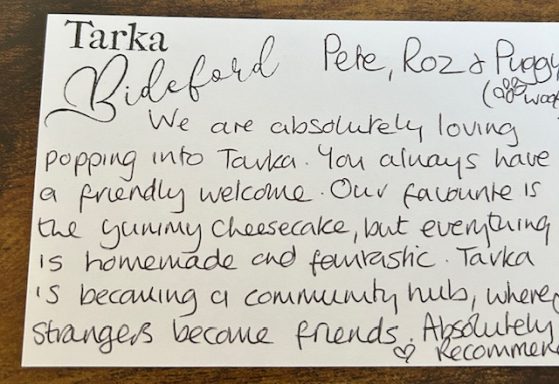 Tarka
Bideford
Pete, Roz & Puggy
(woof
We are absolutely loving
popping into Tarka. You always have
a friendly welcome. Our favourite is
the yummy cheesecake, but everything
is homemade and fantastic. Tarka
is becoming a community hub, where
strangers become friends. Absolutely
Recommen